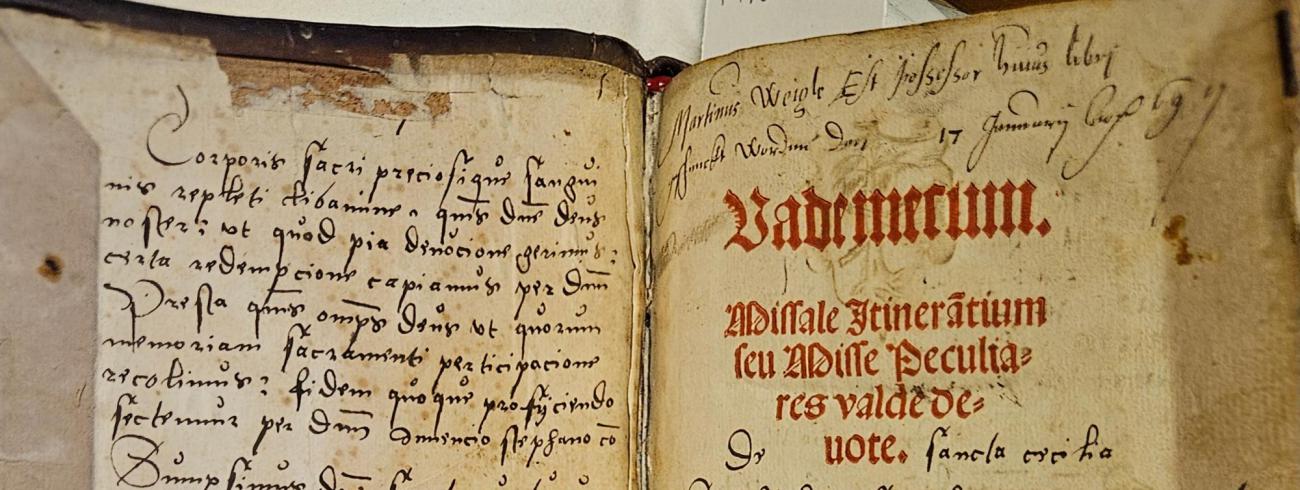 Corporis sacri preciosique sangui
nis repleti libamine, qms dne deus
noster: ut quod pia devocione gerimus:
certa redempcione capiamus per dnm
Presta qms omps deus ut quorum
memoriam sacramenti perticipacione
recolimus: fidem quoque proficiendo
sectemur per dnm Invencio stephano co
Sumpsimus
Martinus Weigle Est possessor huius libri
den 17 January
Vademecum.
Missale Itinerãtium
seu Misse Peculia=
res valde de=
uote.
De sancta cecilia